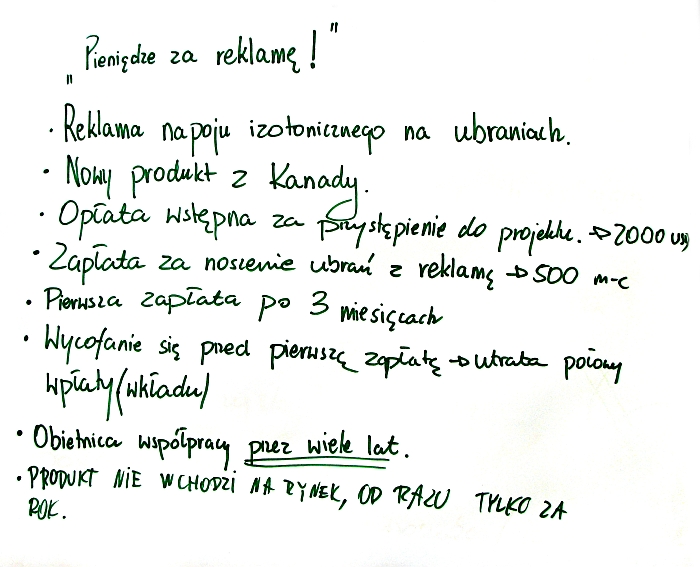 „Pieniądze za reklamę!"
· Reklama napoju izotonicznego na ubraniach.
· Nowy produkt z Kanady.
· Opłata wstępna za przystąpienie do projektu. → 2000 USD
· Zapłata za noszenie ubrań z reklamą → 500 m-c
· Pierwsza zapłata po 3 miesiącach
· Wycofanie się przed pierwszą zapłatą → utrata połowy
wpłaty (wkładu)
· Obietnica współpracy przez wiele lat.
· PRODUKT NIE WCHODZI NA RYNEK, OD RAZU TYLKO ZA
ROK.